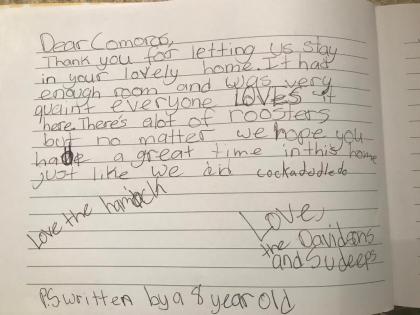 Dear Comoros,
Thank you for letting us stay
in your lovely home. It had
enough room and was very
quaint everyone LOVES it
here. There's alot of roosters
but no matter we hope you
have a great time in this home
just like we did cockadoodledo
Love the
Love,
the Davidsons
and Sudeeps
P.S written by a 8 year old